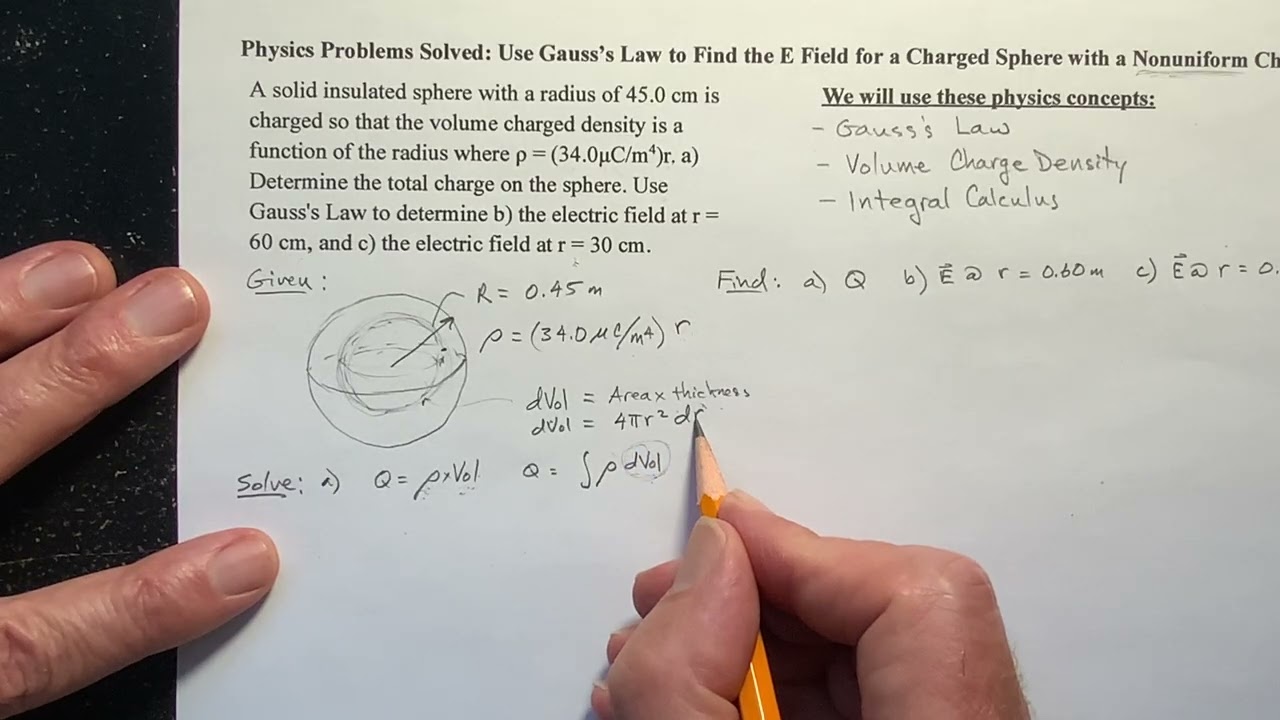 Physics Problems Solved: Use Gauss's Law to Find the E Field for a Charged Sphere with a Nonuniform Ch
A solid insulated sphere with a radius of 45.0 cm is
charged so that the volume charged density is a
function of the radius where ρ = (34.0μC/m⁴)r. a)
Determine the total charge on the sphere. Use
Gauss's Law to determine b) the electric field at r =
60 cm, and c) the electric field at r = 30 cm.
We will use these physics concepts:
- Gauss's Law
- Volume Charge Density
- Integral Calculus
Given:
Find: a) Q b) E⃗ @ r = 0.60 m c) E⃗ @ r = 0.
R = 0.45 m
ρ = (34.0 μC/m⁴) r
dVol = Area x thickness
dVol = 4πr² dr
r
Solve: a) Q = ρ x Vol Q = ∫ ρ dVol